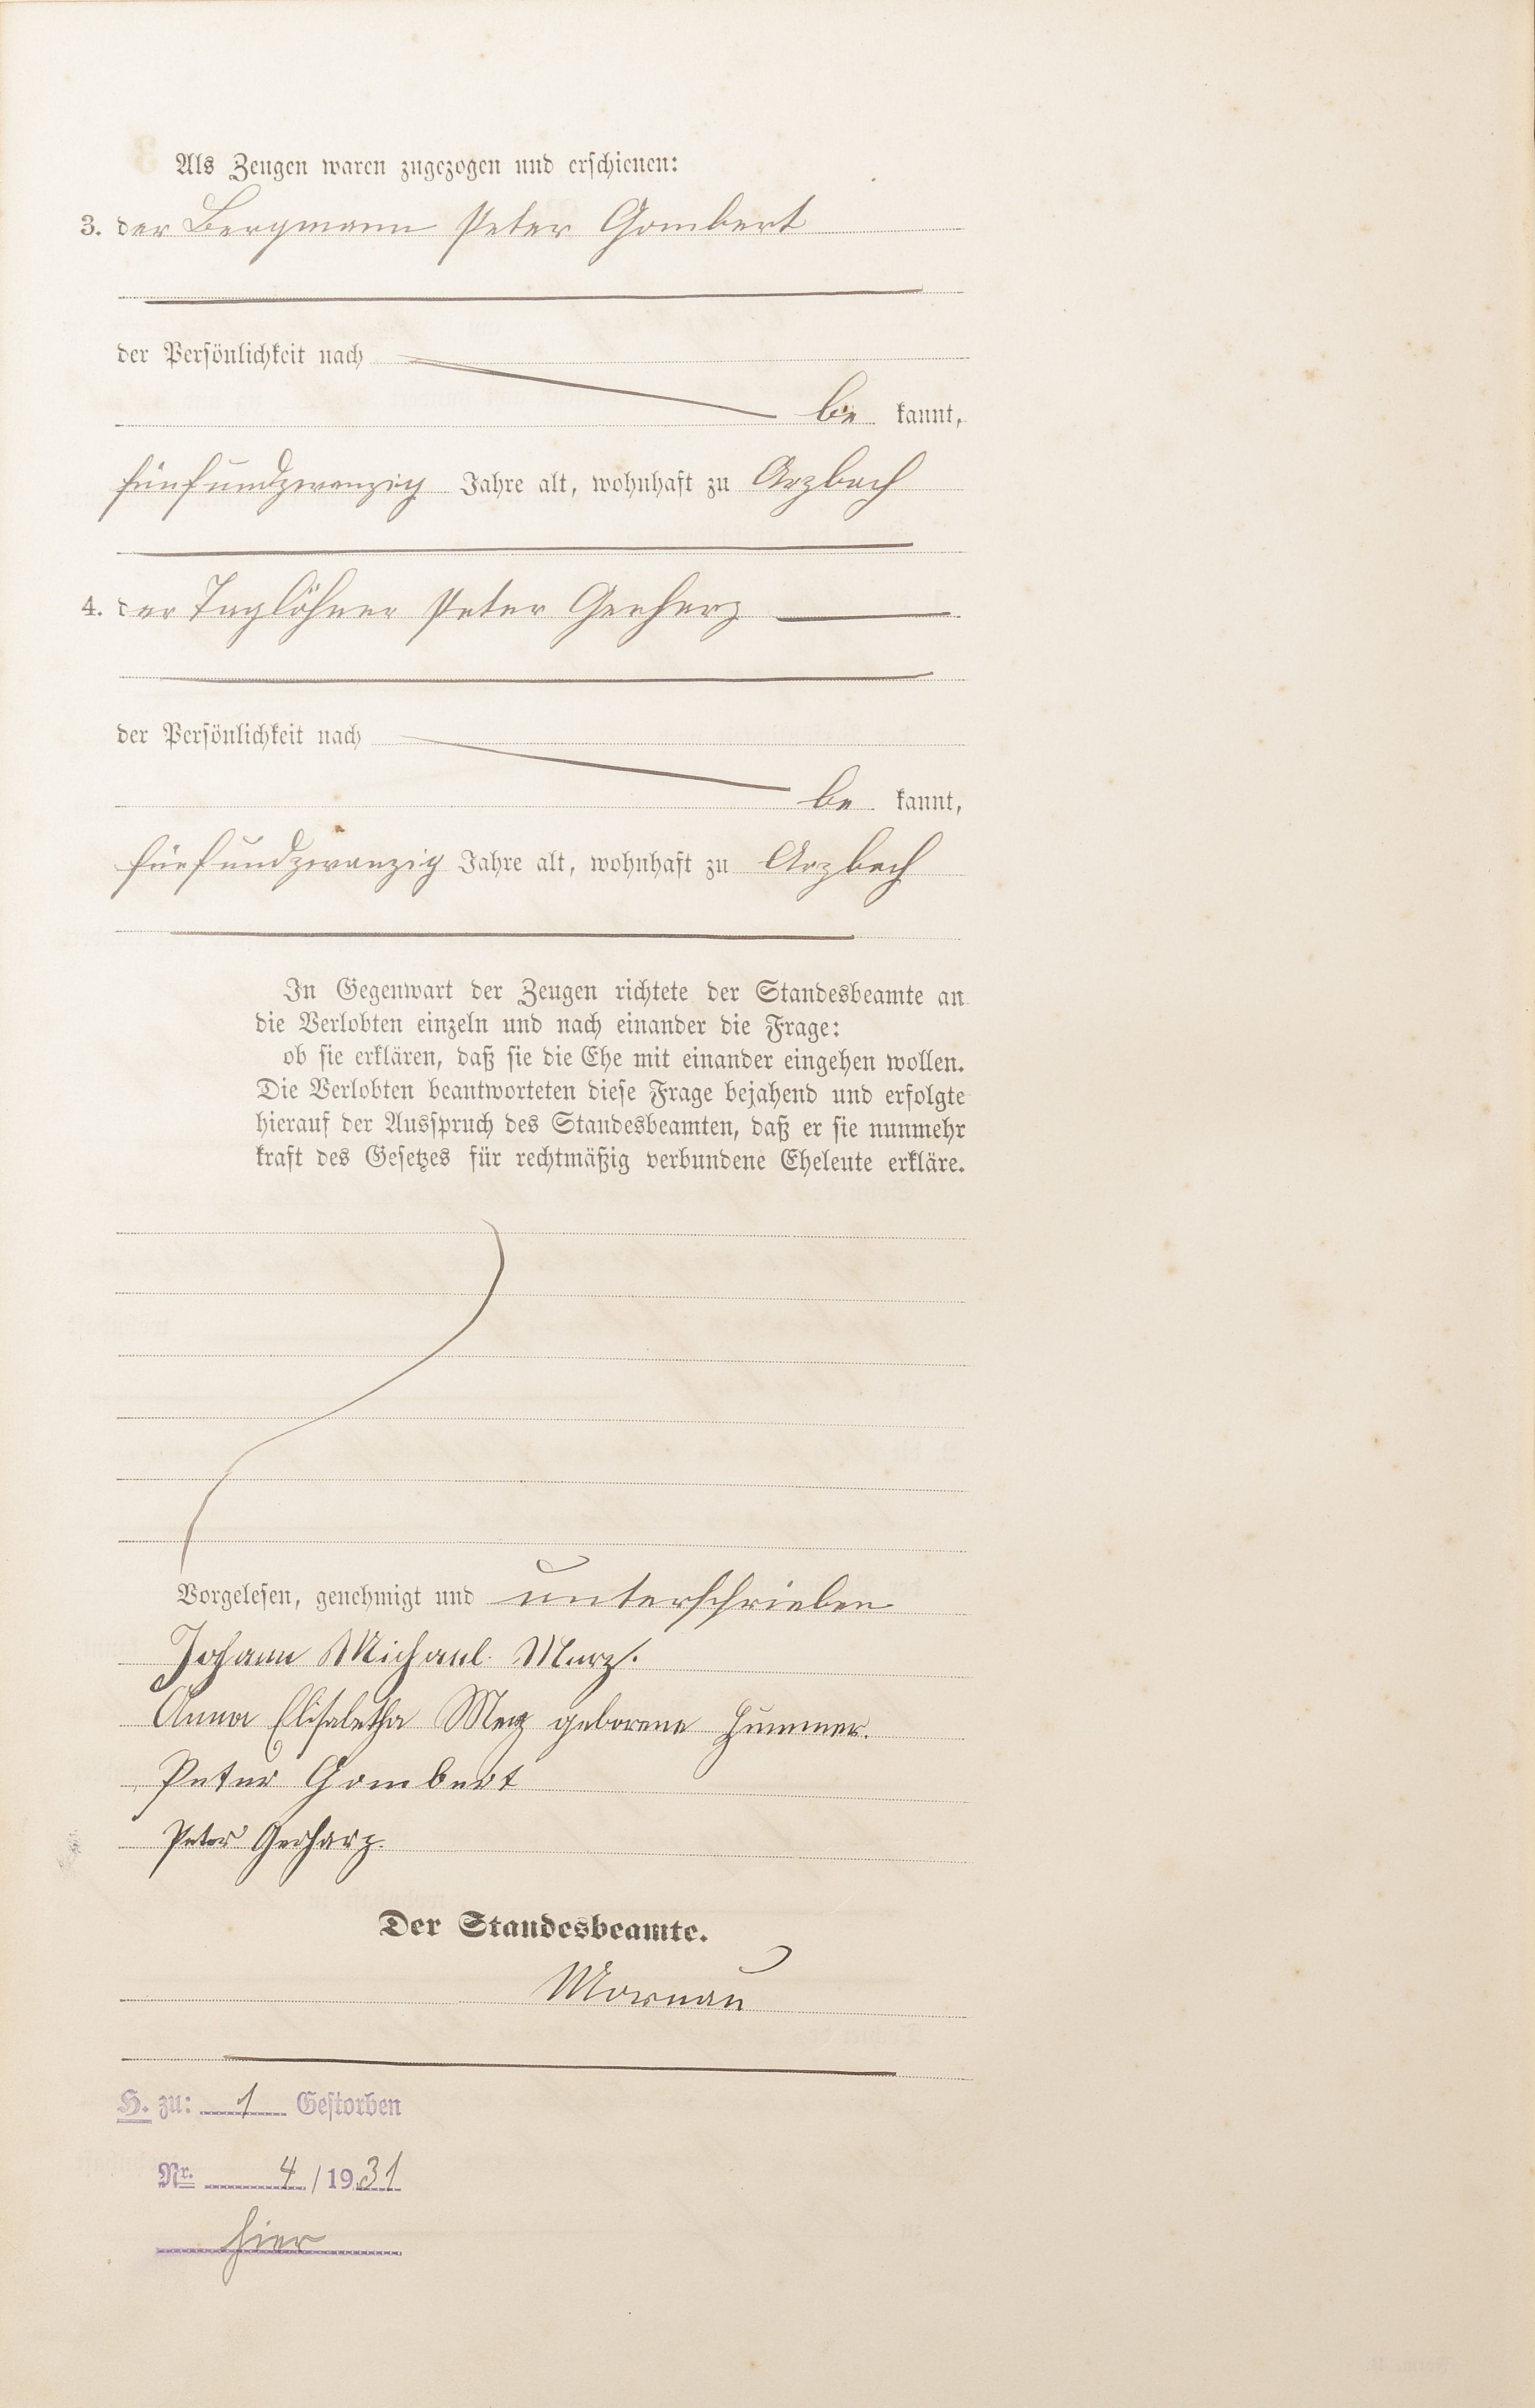 Als Zeugen waren zugezogen und erschienen:
3. der Bergmann Peter Gombert
der Persönlichkeit nach
be kannt,
fünfundzwanzig Jahre alt, wohnhaft zu Arzbach
4. der Taglöhner Peter Gerharz
der Persönlichkeit nach
be kannt,
fünfundzwanzig Jahre alt, wohnhaft zu Arzbach
In Gegenwart der Zeugen richtete der Standesbeamte an
die Verlobten einzeln und nach einander die Frage:
ob sie erklären, daß sie die Ehe mit einander eingehen wollen.
Die Verlobten beantworteten diese Frage bejahend und erfolgte
hierauf der Ausspruch des Standesbeamten, daß er sie nunmehr
kraft des Gesetzes für rechtmäßig verbundene Eheleute erkläre.
Vorgelesen, genehmigt und unterschrieben
Johann Michael Merz.
Anna Elisabetha Merz geborene Hummer.
Peter Gombert
Peter Gerharz.
Der Standesbeamte.
Mornau
H. zu: 1 Gestorben
Nr. 4/1931
hier